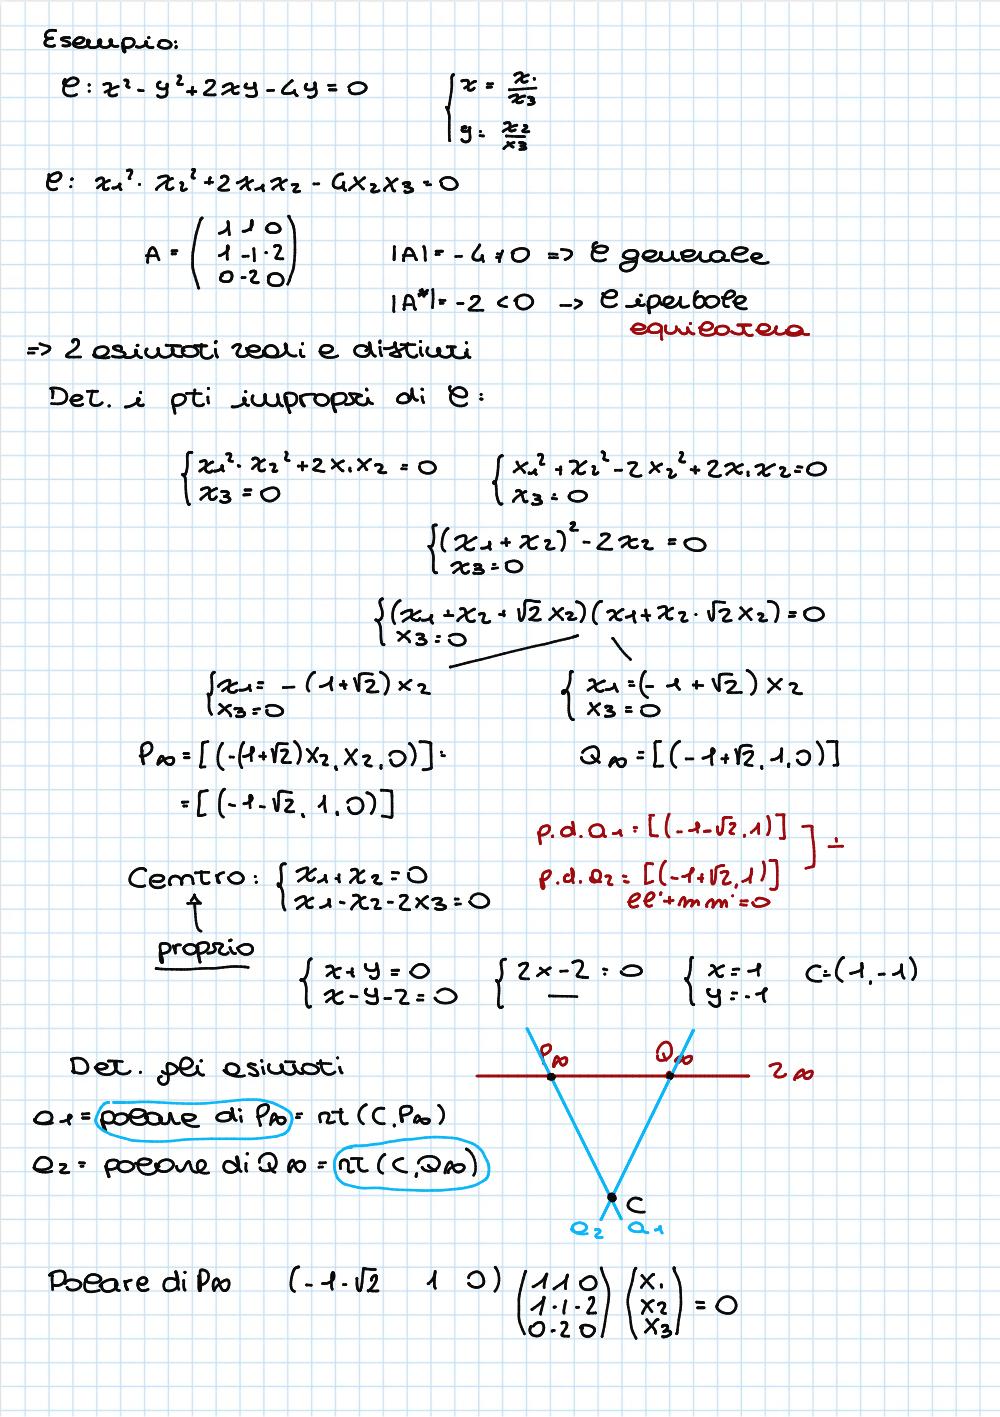 Esempio:
C: x² - y² + 2xy - 4y = 0 { x = x₁/x₃
y = x₂/x₃
C: x₁² - x₂² + 2x₁x₂ - 4x₂x₃ = 0
A = ( 1 1 0
1 -1 -2
0 -2 0 )
|A| = -4 ≠ 0 => C generale
|A*| = -2 < 0 -> C iperbole
equilatera
=> 2 asintoti reali e distinti
Det. i pti impropri di C:
{ x₁² - x₂² + 2x₁x₂ = 0
x₃ = 0
{ x₁² + x₂² - 2x₂² + 2x₁x₂ = 0
x₃ = 0
{ (x₁ + x₂)² - 2x₂ = 0
x₃ = 0
{ (x₁ + x₂ + √2 x₂)(x₁ + x₂ - √2 x₂) = 0
x₃ = 0
{ x₁ = - (1+√2) x₂
x₃ = 0
{ x₁ = (-1 + √2) x₂
x₃ = 0
P∞ = [(-(1+√2)x₂, x₂, 0)] =
= [(-1-√2, 1, 0)]
Q∞ = [(-1+√2, 1, 0)]
p.d.a₁ = [(-1-√2, 1)] ] ⊥
p.d.a₂ = [(-1+√2, 1)]
ll' + mm' = 0
Centro: { x₁ + x₂ = 0
x₁ - x₂ - 2x₃ = 0
proprio
{ x + y = 0
x - y - 2 = 0
{ 2x - 2 = 0
—
{ x = 1
y = -1
C = (1, -1)
Det. gli asintoti
a₁ = polare di P∞ = rt (C, P∞)
a₂ = polare di Q∞ = rt (C, Q∞)
P∞ Q∞ r∞
C
a₂ a₁
Polare di P∞ (-1-√2 1 0) ( 1 1 0
1 -1 -2
0 -2 0 ) ( x₁
x₂
x₃ ) = 0